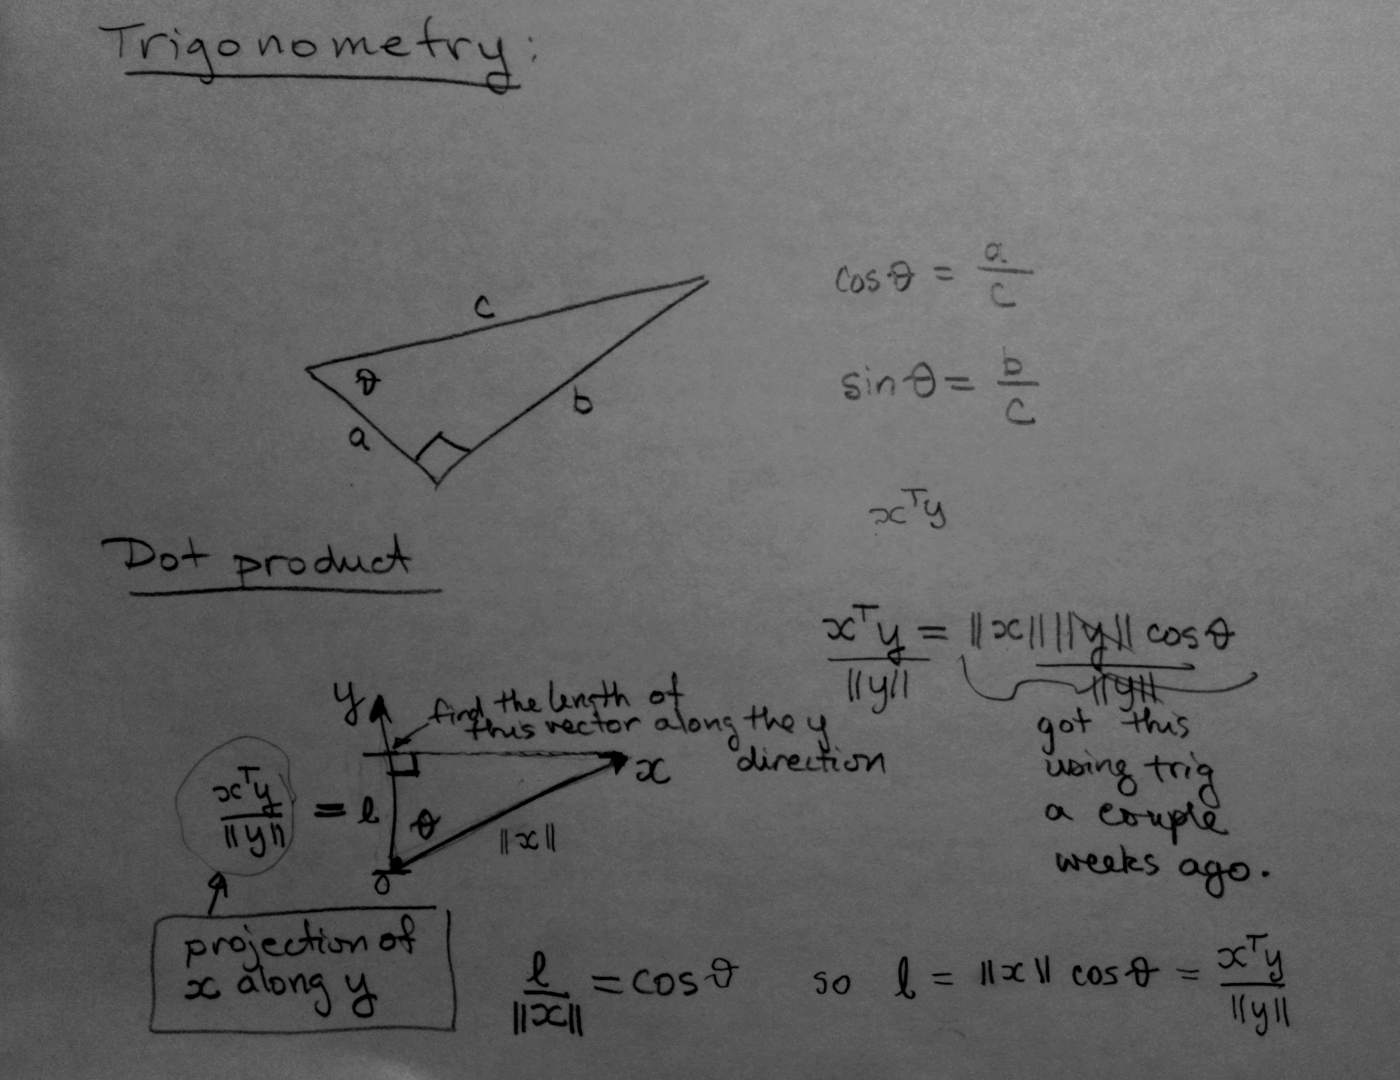 Trigonometry:
c
θ
a
b
cosθ = a/c
sinθ = b/c
xᵀy
Dot product
xᵀy/||y|| = ||x|| ||y|| cosθ/||y||
got this
using trig
a couple
weeks ago.
y
find the length of
this vector along the y
direction
x
xᵀy/||y|| = l
θ
||x||
0
projection of
x along y
l/||x|| = cosθ so l = ||x|| cosθ = xᵀy/||y||